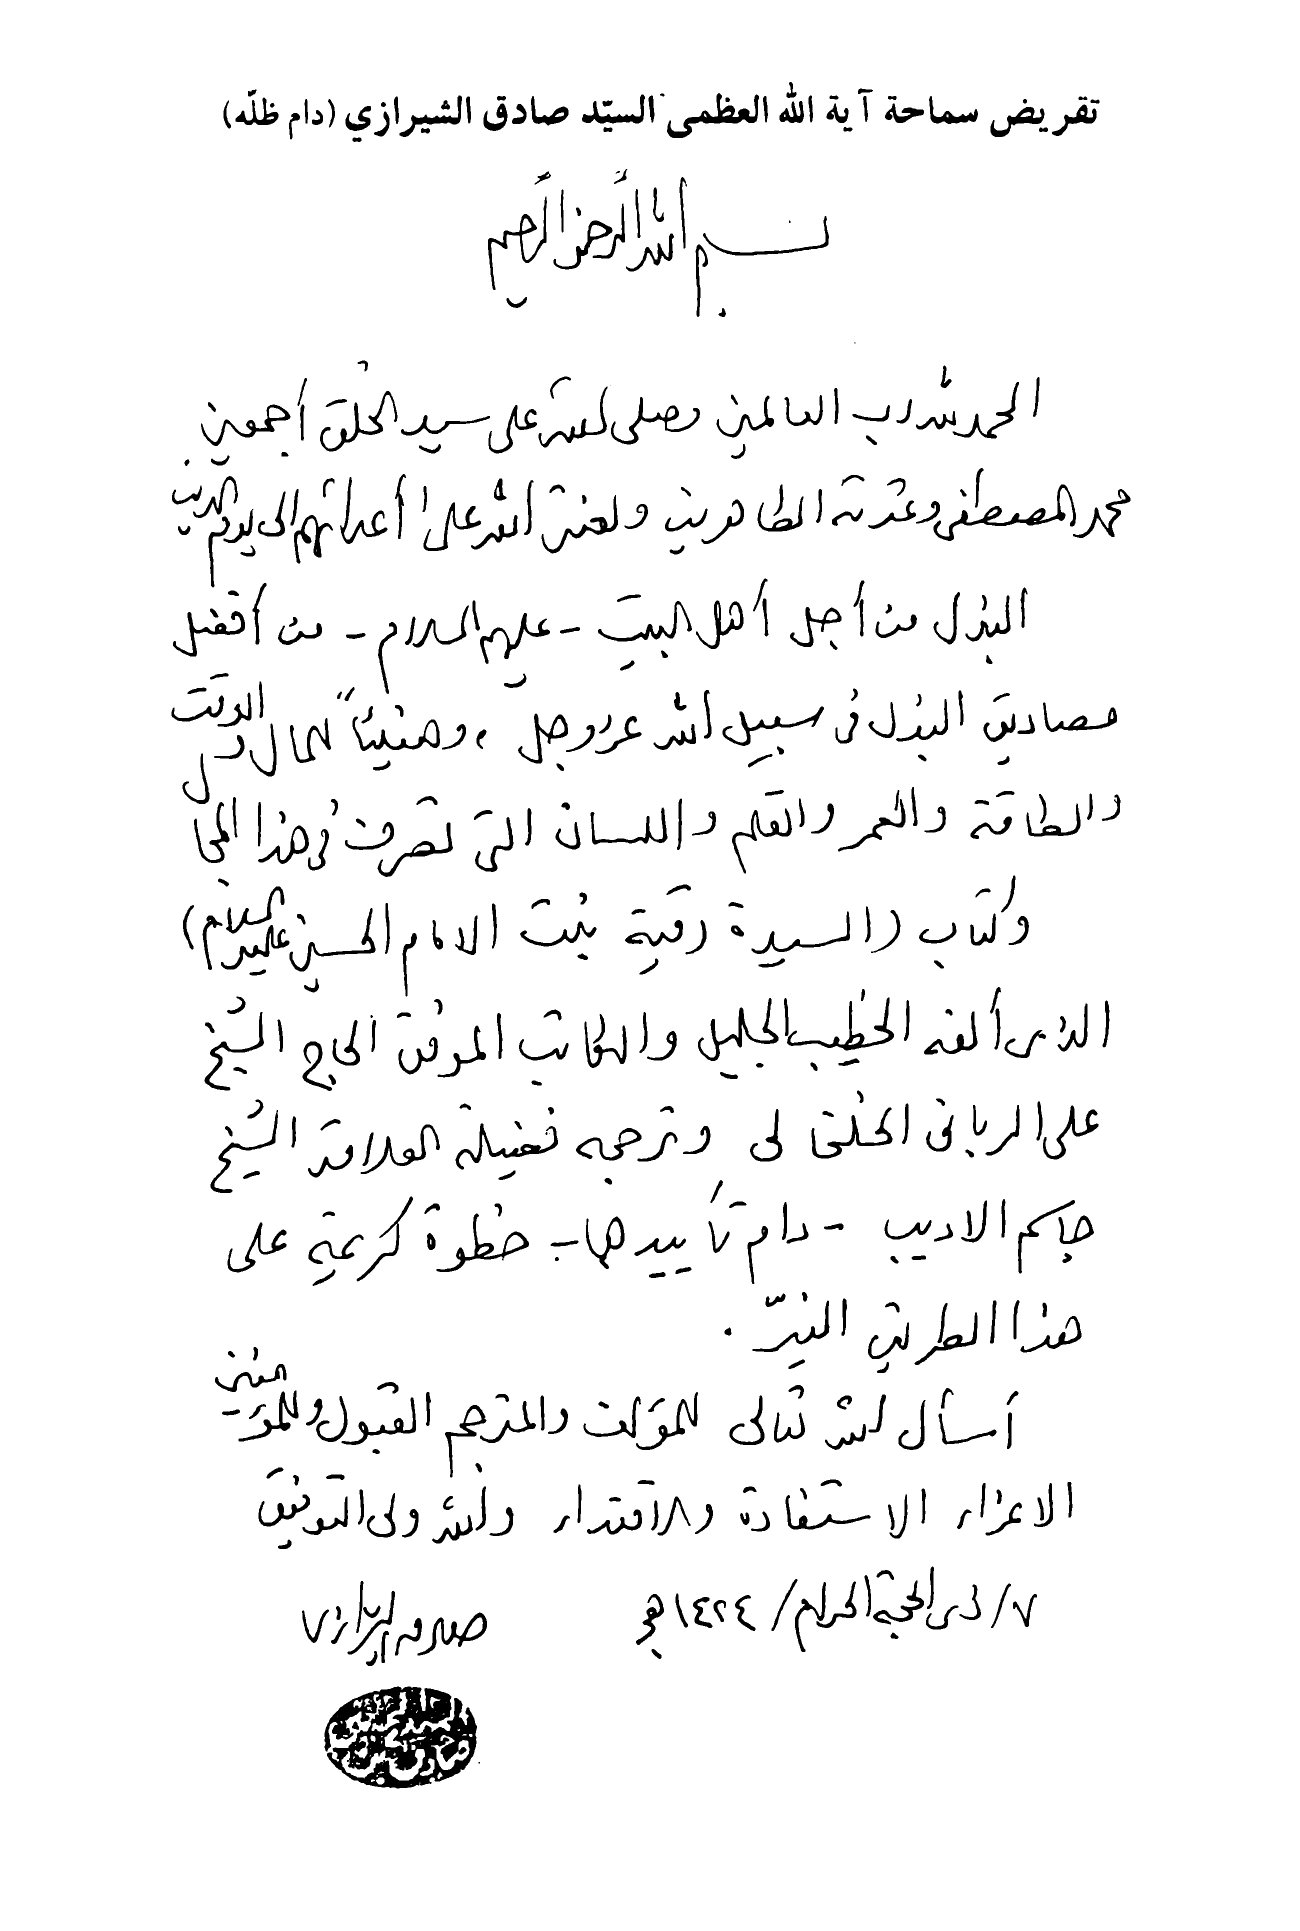 تقريض سماحة آية الله العظمى السيّد صادق الشيرازي (دام ظلّه)
بسم الله الرحمن الرحيم
الحمد لله رب العالمين وصلى الله على سيد الخلق أجمعين
محمد المصطفى وعترته الطاهرين ولعنة الله على أعدائهم الى يوم الدين
البذل من أجل أهل البيت - عليهم السلام - من أفضل
مصاديق البذل في سبيل الله عزوجل ، وهنيئاً للمال والوقت
والطاقة والعمر والقلم واللسان التي تصرف في هذا المجال
وكتاب (السيدة رقية بنت الامام الحسين عليه السلام)
الذى ألفه الخطيب الجليل والكاتب الموفق الحاج الشيخ
على الربانى الخلخالى وترجمه فضيلة العلامة الشيخ
جاسم الاديب - دام تأييدهما - خطوة كريمة على
هذا الطريق النيّر .
أسأل الله تعالى للمؤلف والمترجم القبول وللمؤمنين
الاعزاء الاستفادة والاقتداء والله ولى التوفيق
٧/ ذى الحجة الحرام/ ١٤٢٤هج
صادق الشيرازي